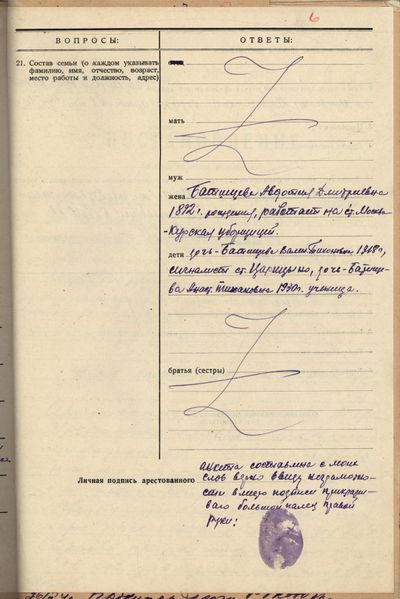 6
ВОПРОСЫ: ОТВЕТЫ:
21. Состав семьи (о каждом указывать
фамилию, имя, отчество, возраст,
место работы и должность, адрес)
мать
муж
жена Батищева Авдотия Дмитриевна
1892 г. рождения, работает на ст. Москва
-Курская уборщицей.
дети дочь-Батищева Вален. Тихоновна 1918 г,
сигналист ст. Царицыно, дочь-Батище-
ва Анаст. Тихановна 1930 г. ученица.
братья (сестры)
Личная подпись арестованного
анкета составлена с моих
слов верно ввиду незрамотно-
сти вместо подписи приклады-
ваю большой палец правой
руки: